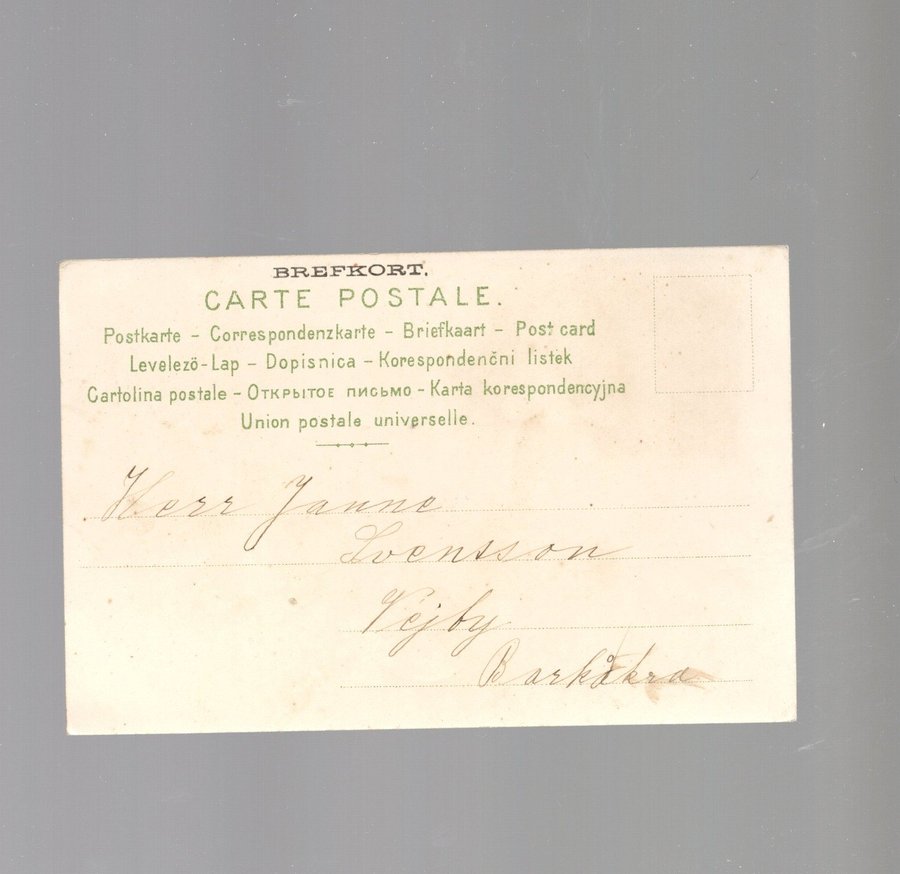 BREFKORT.
CARTE POSTALE.
Postkarte – Correspondenzkarte – Briefkaart – Post card
Levelezö-Lap – Dopisnica – Korespondenčni listek
Cartolina postale – Открытое письмо – Karta korespondencyjna
Union postale universelle.
Herr Janne
Svensson
Vejby
Barkåkra